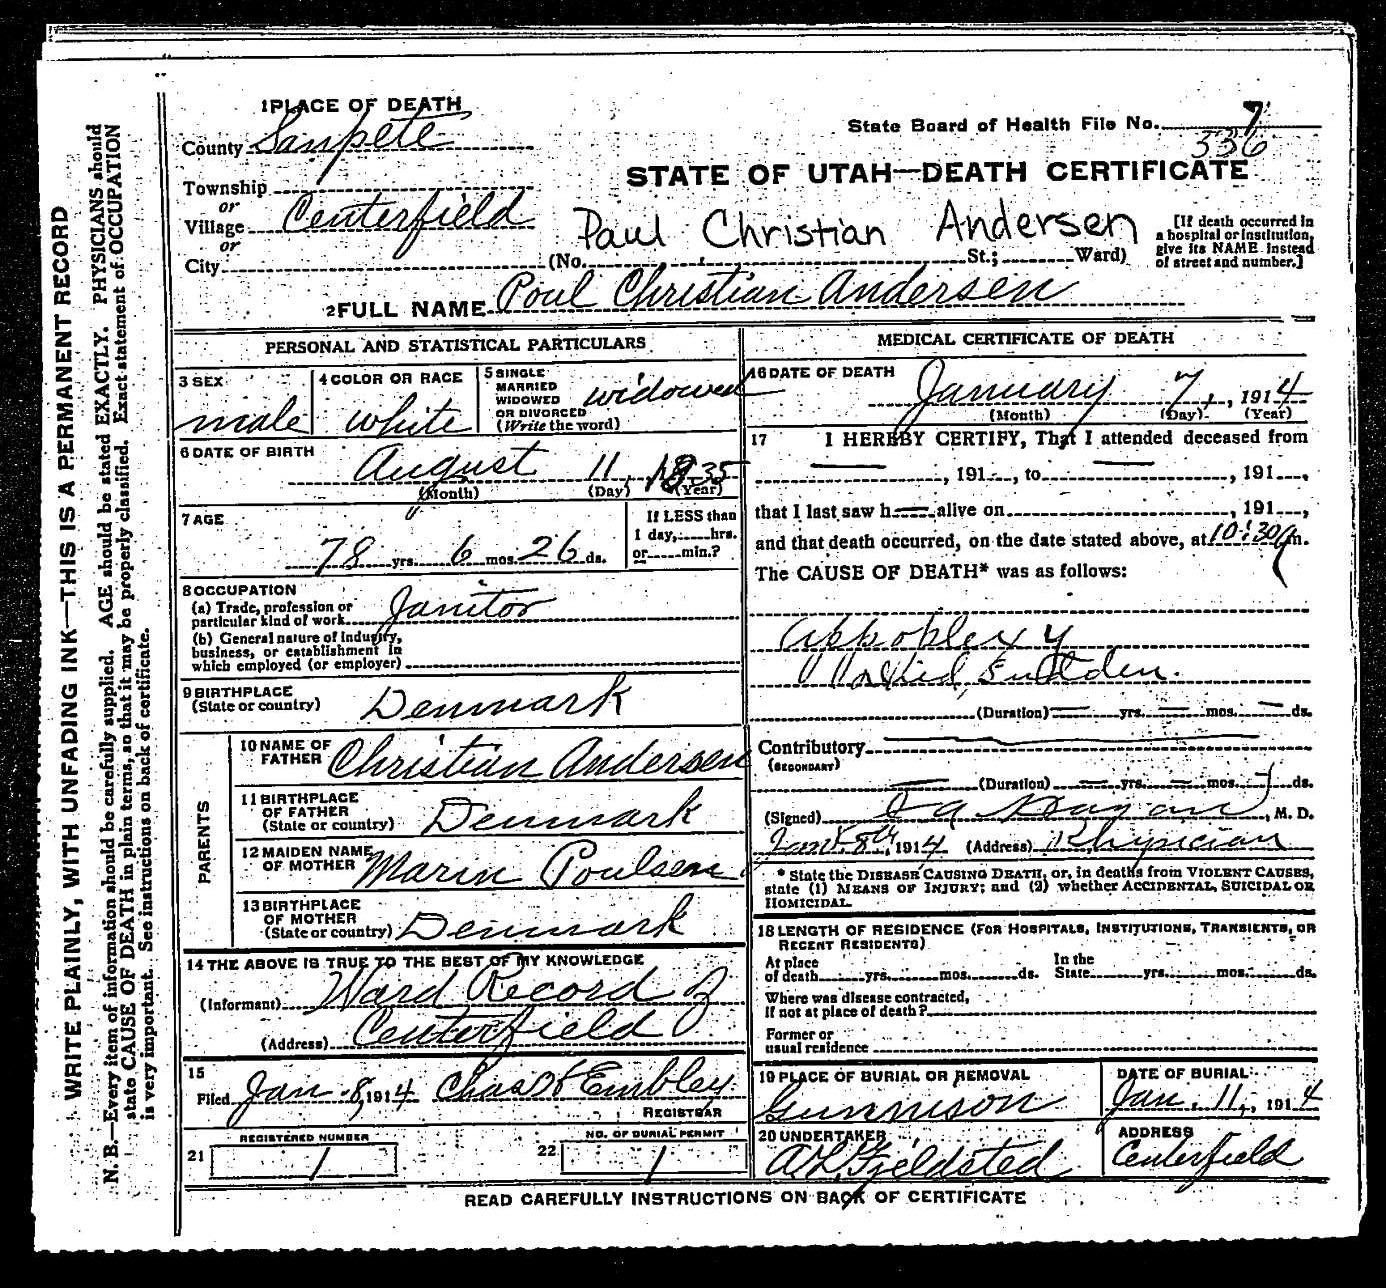 WRITE PLAINLY, WITH UNFADING INK—THIS IS A PERMANENT RECORD
N. B.—Every item of information should be carefully supplied. AGE should be stated EXACTLY. PHYSICIANS should
state CAUSE OF DEATH in plain terms, so that it may be properly classified. Exact statement of OCCUPATION
is very important. See instructions on back of certificate.
1 PLACE OF DEATH
County Sanpete
Township
or
Village Centerfield
or
City
State Board of Health File No. 7
336
STATE OF UTAH—DEATH CERTIFICATE
Paul Christian Andersen
(No. , St.; Ward)
[If death occurred in
a hospital or institution,
give its NAME instead
of street and number.]
2 FULL NAME Poul Christian Andersen
PERSONAL AND STATISTICAL PARTICULARS
3 SEX
male
4 COLOR OR RACE
white
5 SINGLE
MARRIED
WIDOWED
OR DIVORCED
(Write the word)
widowed
6 DATE OF BIRTH
August 11, 1835
(Month) (Day) (Year)
7 AGE
78 yrs. 6 mos. 26 ds.
If LESS than
1 day, hrs.
or min.?
8 OCCUPATION
(a) Trade, profession or
particular kind of work Janitor
(b) General nature of industry,
business, or establishment in
which employed (or employer)
9 BIRTHPLACE
(State or country) Denmark
PARENTS
10 NAME OF
FATHER Christian Andersen
11 BIRTHPLACE
OF FATHER
(State or country) Denmark
12 MAIDEN NAME
OF MOTHER Marin Poulsen
13 BIRTHPLACE
OF MOTHER
(State or country) Denmark
14 THE ABOVE IS TRUE TO THE BEST OF MY KNOWLEDGE
(Informant) Ward Record of
(Address) Centerfield
15
Filed Jan. 8, 1914 Chas Embley
REGISTRAR
21 REGISTERED NUMBER
1
22 NO. OF BURIAL PERMIT
1
MEDICAL CERTIFICATE OF DEATH
16 DATE OF DEATH
January 7, , 1914
(Month) (Day) (Year)
17 I HEREBY CERTIFY, That I attended deceased from
— , 191 , to — , 191 ,
that I last saw h— alive on , 191 ,
and that death occurred, on the date stated above, at 10:30 a m.
The CAUSE OF DEATH* was as follows:
Appoplexy
Sudden.
(Duration) — yrs. — mos. — ds.
Contributory —
(SECONDARY)
— (Duration) — yrs. — mos. ds.
(Signed) , M. D.
Jan 8th, 1914 (Address) Physician
* State the DISEASE CAUSING DEATH, or, in deaths from VIOLENT CAUSES,
state (1) MEANS OF INJURY; and (2) whether ACCIDENTAL, SUICIDAL OR
HOMICIDAL.
18 LENGTH OF RESIDENCE (FOR HOSPITALS, INSTITUTIONS, TRANSIENTS, OR
RECENT RESIDENTS)
At place
of death yrs. mos. ds.
In the
State yrs. mos. ds.
Where was disease contracted,
if not at place of death?
Former or
usual residence
19 PLACE OF BURIAL OR REMOVAL
Gunnison
DATE OF BURIAL
Jan. 11, , 1914
20 UNDERTAKER
A L Fjeldsted
ADDRESS
Centerfield
READ CAREFULLY INSTRUCTIONS ON BACK OF CERTIFICATE